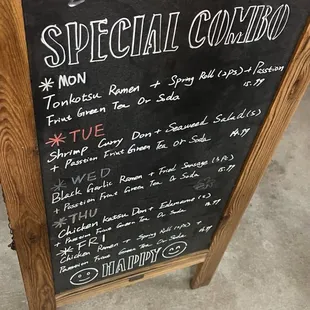 SPECIAL COMBO
* MON
Tonkotsu Ramen + Spring Roll (2ps) + Passtion
Friut Green Tea Or Soda 15.99
* TUE
Shrimp Curry Don + Seaweed Salad (s)
+ Passtion Friut Green Tea Or Soda 14.99
* WED
Black Garlic Ramen + Fried Sausage
+ Passtion Friut Green Tea Or Soda
* THU
Chicken Katsu Don + Edamame (s)
+ Passtion Friut Green Tea Or Soda
* FRI
Chicken Ramen + Spring Roll (2ps) +
Passtion Friut Green Tea Or Soda
HAPPY